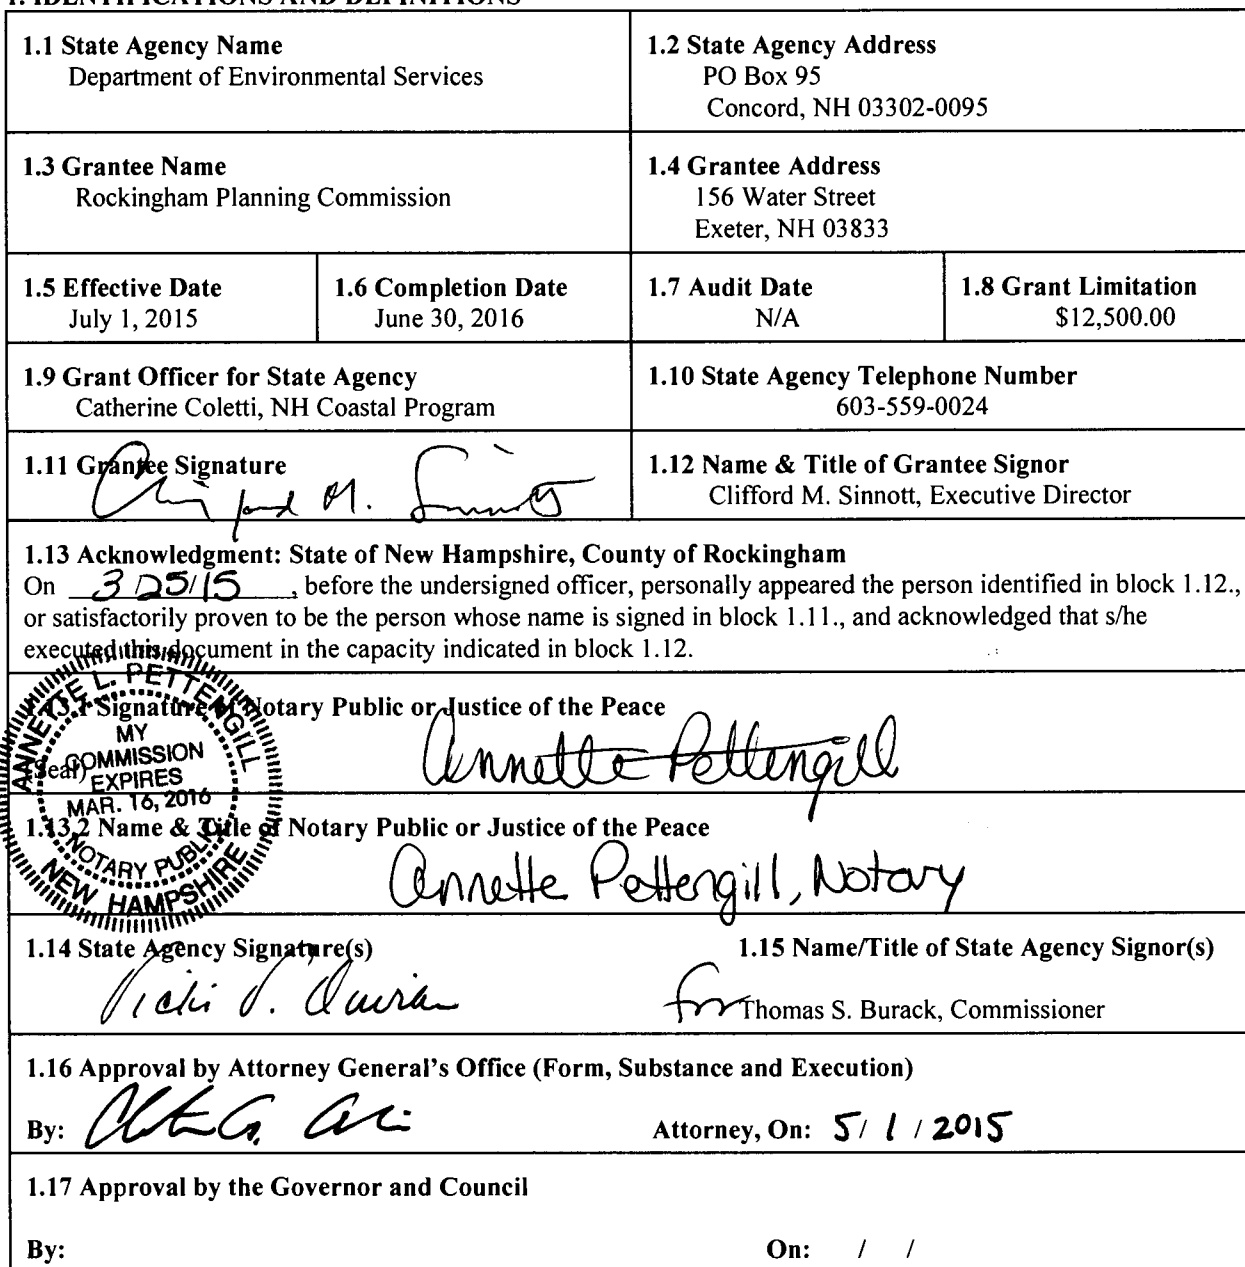 1. IDENTIFICATIONS AND DEFINITIONS
1.1 State Agency Name
Department of Environmental Services
1.2 State Agency Address
PO Box 95
Concord, NH 03302-0095
1.3 Grantee Name
Rockingham Planning Commission
1.4 Grantee Address
156 Water Street
Exeter, NH 03833
1.5 Effective Date
July 1, 2015
1.6 Completion Date
June 30, 2016
1.7 Audit Date
N/A
1.8 Grant Limitation
$12,500.00
1.9 Grant Officer for State Agency
Catherine Coletti, NH Coastal Program
1.10 State Agency Telephone Number
603-559-0024
1.11 Grantee Signature
Clifford M. Sinnott
1.12 Name & Title of Grantee Signor
Clifford M. Sinnott, Executive Director
1.13 Acknowledgment: State of New Hampshire, County of Rockingham
On 3/25/15, before the undersigned officer, personally appeared the person identified in block 1.12.,
or satisfactorily proven to be the person whose name is signed in block 1.11., and acknowledged that s/he
executed this document in the capacity indicated in block 1.12.
1.13.1 Signature of Notary Public or Justice of the Peace
(Seal)
Annette Pettengill
ANNETTE L. PETTENGILL
MY
COMMISSION
EXPIRES
MAR. 16, 2016
NOTARY PUBLIC
NEW HAMPSHIRE
1.13.2 Name & Title of Notary Public or Justice of the Peace
Annette Pettengill, Notary
1.14 State Agency Signature(s)
Vicki V. Quiram
1.15 Name/Title of State Agency Signor(s)
for Thomas S. Burack, Commissioner
1.16 Approval by Attorney General's Office (Form, Substance and Execution)
By:
Attorney, On: 5/ 1 / 2015
1.17 Approval by the Governor and Council
By:
On: / /